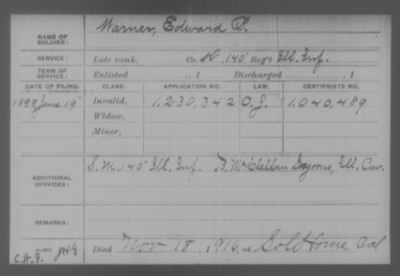 NAME OF SOLDIER: Warner, Edward P.
SERVICE: Late rank, Co. 140 Reg't Ill. Inf.
TERM OF SERVICE: Enlisted , 1 Discharged , 1
DATE OF FILING. CLASS. APPLICATION NO. LAW. CERTIFICATE NO.
June 19 Invalid, 1,230,342 1,040,489
Widow,
Minor,
ADDITIONAL SERVICES: 140 Ill. Inf. B. McClellan Dragoons, Ill. Cav.
REMARKS:
Died Nov 18, 1916, at Sold Home Cal